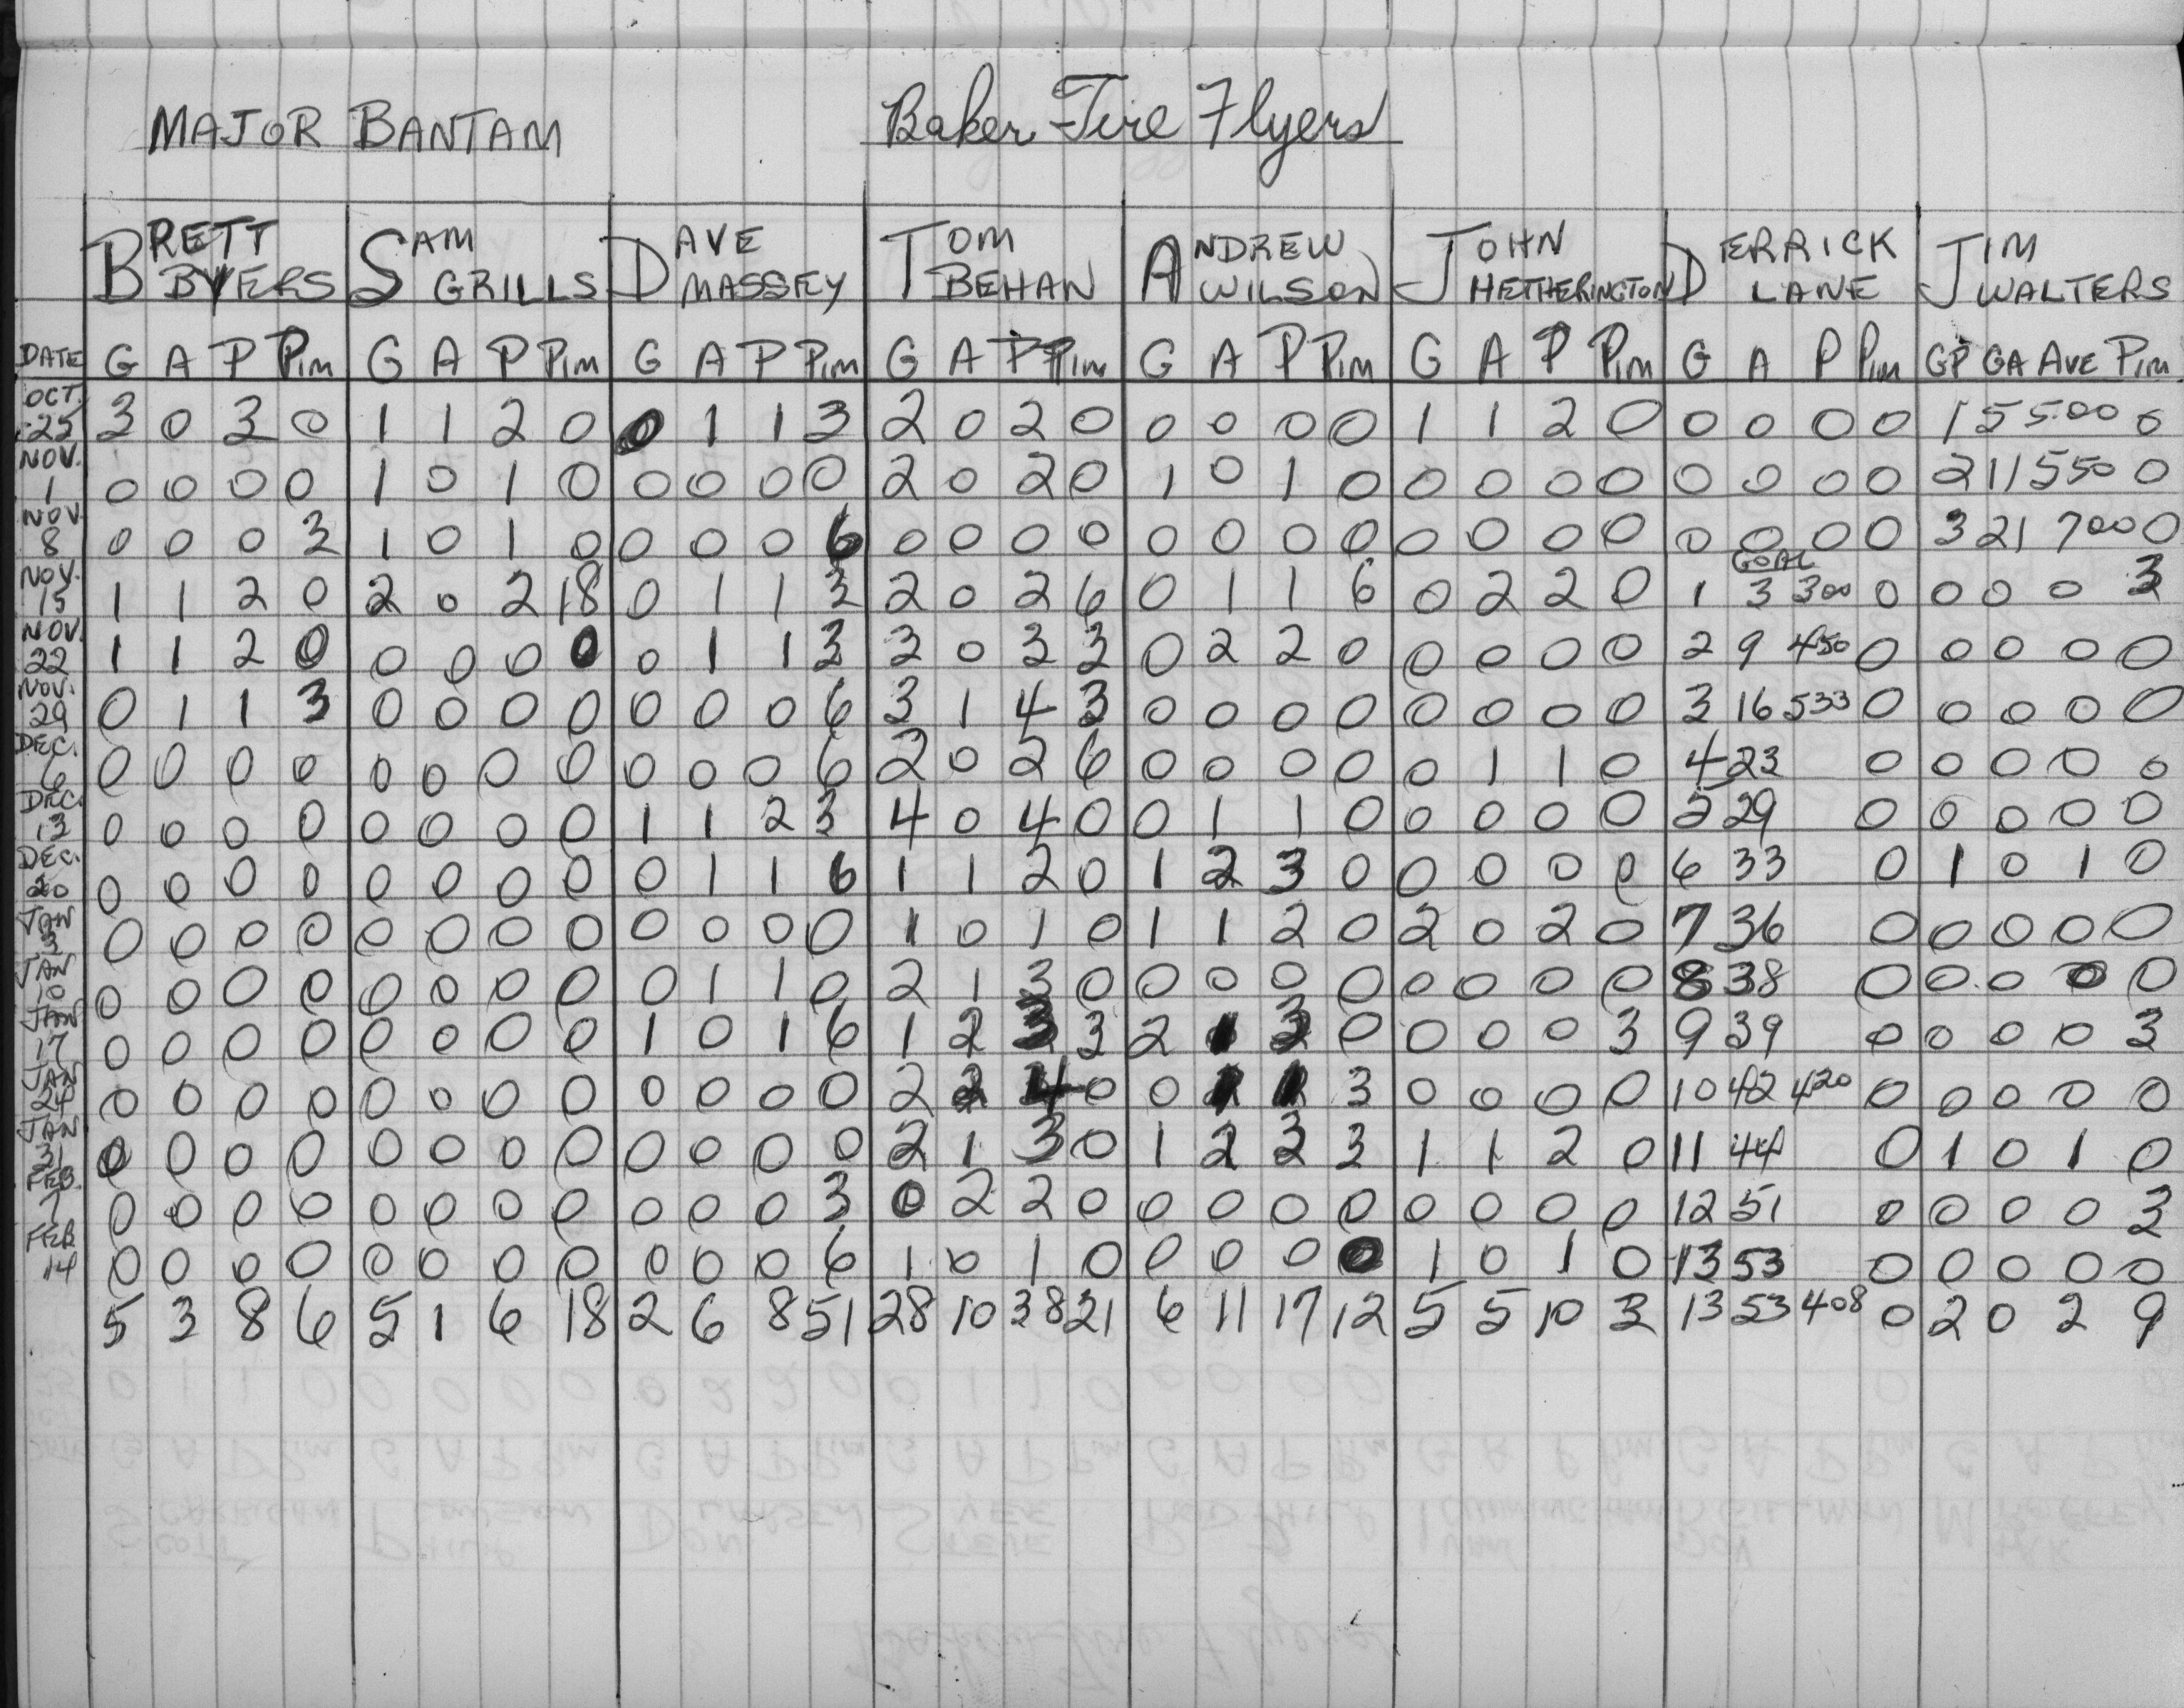 MAJOR BANTAM Baker Tire Flyers
BRETT BYERS SAM GRILLS DAVE MASSEY TOM BEHAN ANDREW WILSON JOHN HETHERINGTON DERRICK LANE JIM WALTERS
DATE G A P Pim G A P Pim G A P Pim G A P Pim G A P Pim G A P Pim G A P Pim GP GA AVE Pim
OCT. 25 3 0 3 0 1 1 2 0 0 1 1 3 2 0 2 0 0 0 0 0 1 1 2 0 0 0 0 0 1 5 5.00 0
NOV. 1 0 0 0 0 1 0 1 0 0 0 0 0 2 0 2 0 1 0 1 0 0 0 0 0 0 0 0 0 2 11 550 0
NOV. 8 0 0 0 3 1 0 1 0 0 0 0 6 0 0 0 0 0 0 0 0 0 0 0 0 0 0 0 0 3 21 700 0
GOAL
NOV. 15 1 1 2 0 2 0 2 18 0 1 1 3 2 0 2 6 0 1 1 6 0 2 2 0 1 3 300 0 0 0 0 3
NOV. 22 1 1 2 0 0 0 0 0 0 1 1 3 3 0 3 3 0 2 2 0 0 0 0 0 2 9 450 0 0 0 0 0
NOV. 29 0 1 1 3 0 0 0 0 0 0 0 6 3 1 4 3 0 0 0 0 0 0 0 0 3 16 533 0 0 0 0 0
DEC. 6 0 0 0 0 0 0 0 0 0 0 0 6 2 0 2 6 0 0 0 0 0 1 1 0 4 23 0 0 0 0 0
DEC. 13 0 0 0 0 0 0 0 0 1 1 2 3 4 0 4 0 0 1 1 0 0 0 0 0 5 29 0 0 0 0 0
DEC. 20 0 0 0 0 0 0 0 0 0 1 1 6 1 1 2 0 1 2 3 0 0 0 0 0 6 33 0 1 0 1 0
JAN 3 0 0 0 0 0 0 0 0 0 0 0 0 1 0 1 0 1 1 2 0 2 0 2 0 7 36 0 0 0 0 0
JAN 10 0 0 0 0 0 0 0 0 0 1 1 0 2 1 3 0 0 0 0 0 0 0 0 0 8 38 0 0 0 0 0
JAN 17 0 0 0 0 0 0 0 0 1 0 1 6 1 2 3 3 2 1 3 0 0 0 0 3 9 39 0 0 0 0 3
JAN 24 0 0 0 0 0 0 0 0 0 0 0 0 2 2 4 0 0 1 1 3 0 0 0 0 10 42 420 0 0 0 0 0
JAN 31 0 0 0 0 0 0 0 0 0 0 0 0 2 1 3 0 1 2 3 3 1 1 2 0 11 44 0 1 0 1 0
FEB. 7 0 0 0 0 0 0 0 0 0 0 0 3 0 2 2 0 0 0 0 0 0 0 0 0 12 51 0 0 0 0 3
FEB 14 0 0 0 0 0 0 0 0 0 0 0 6 1 0 1 0 0 0 0 0 1 0 1 0 13 53 0 0 0 0 0
5 3 8 6 5 1 6 18 2 6 8 51 28 10 38 21 6 11 17 12 5 5 10 3 13 53 408 0 2 0 2 9